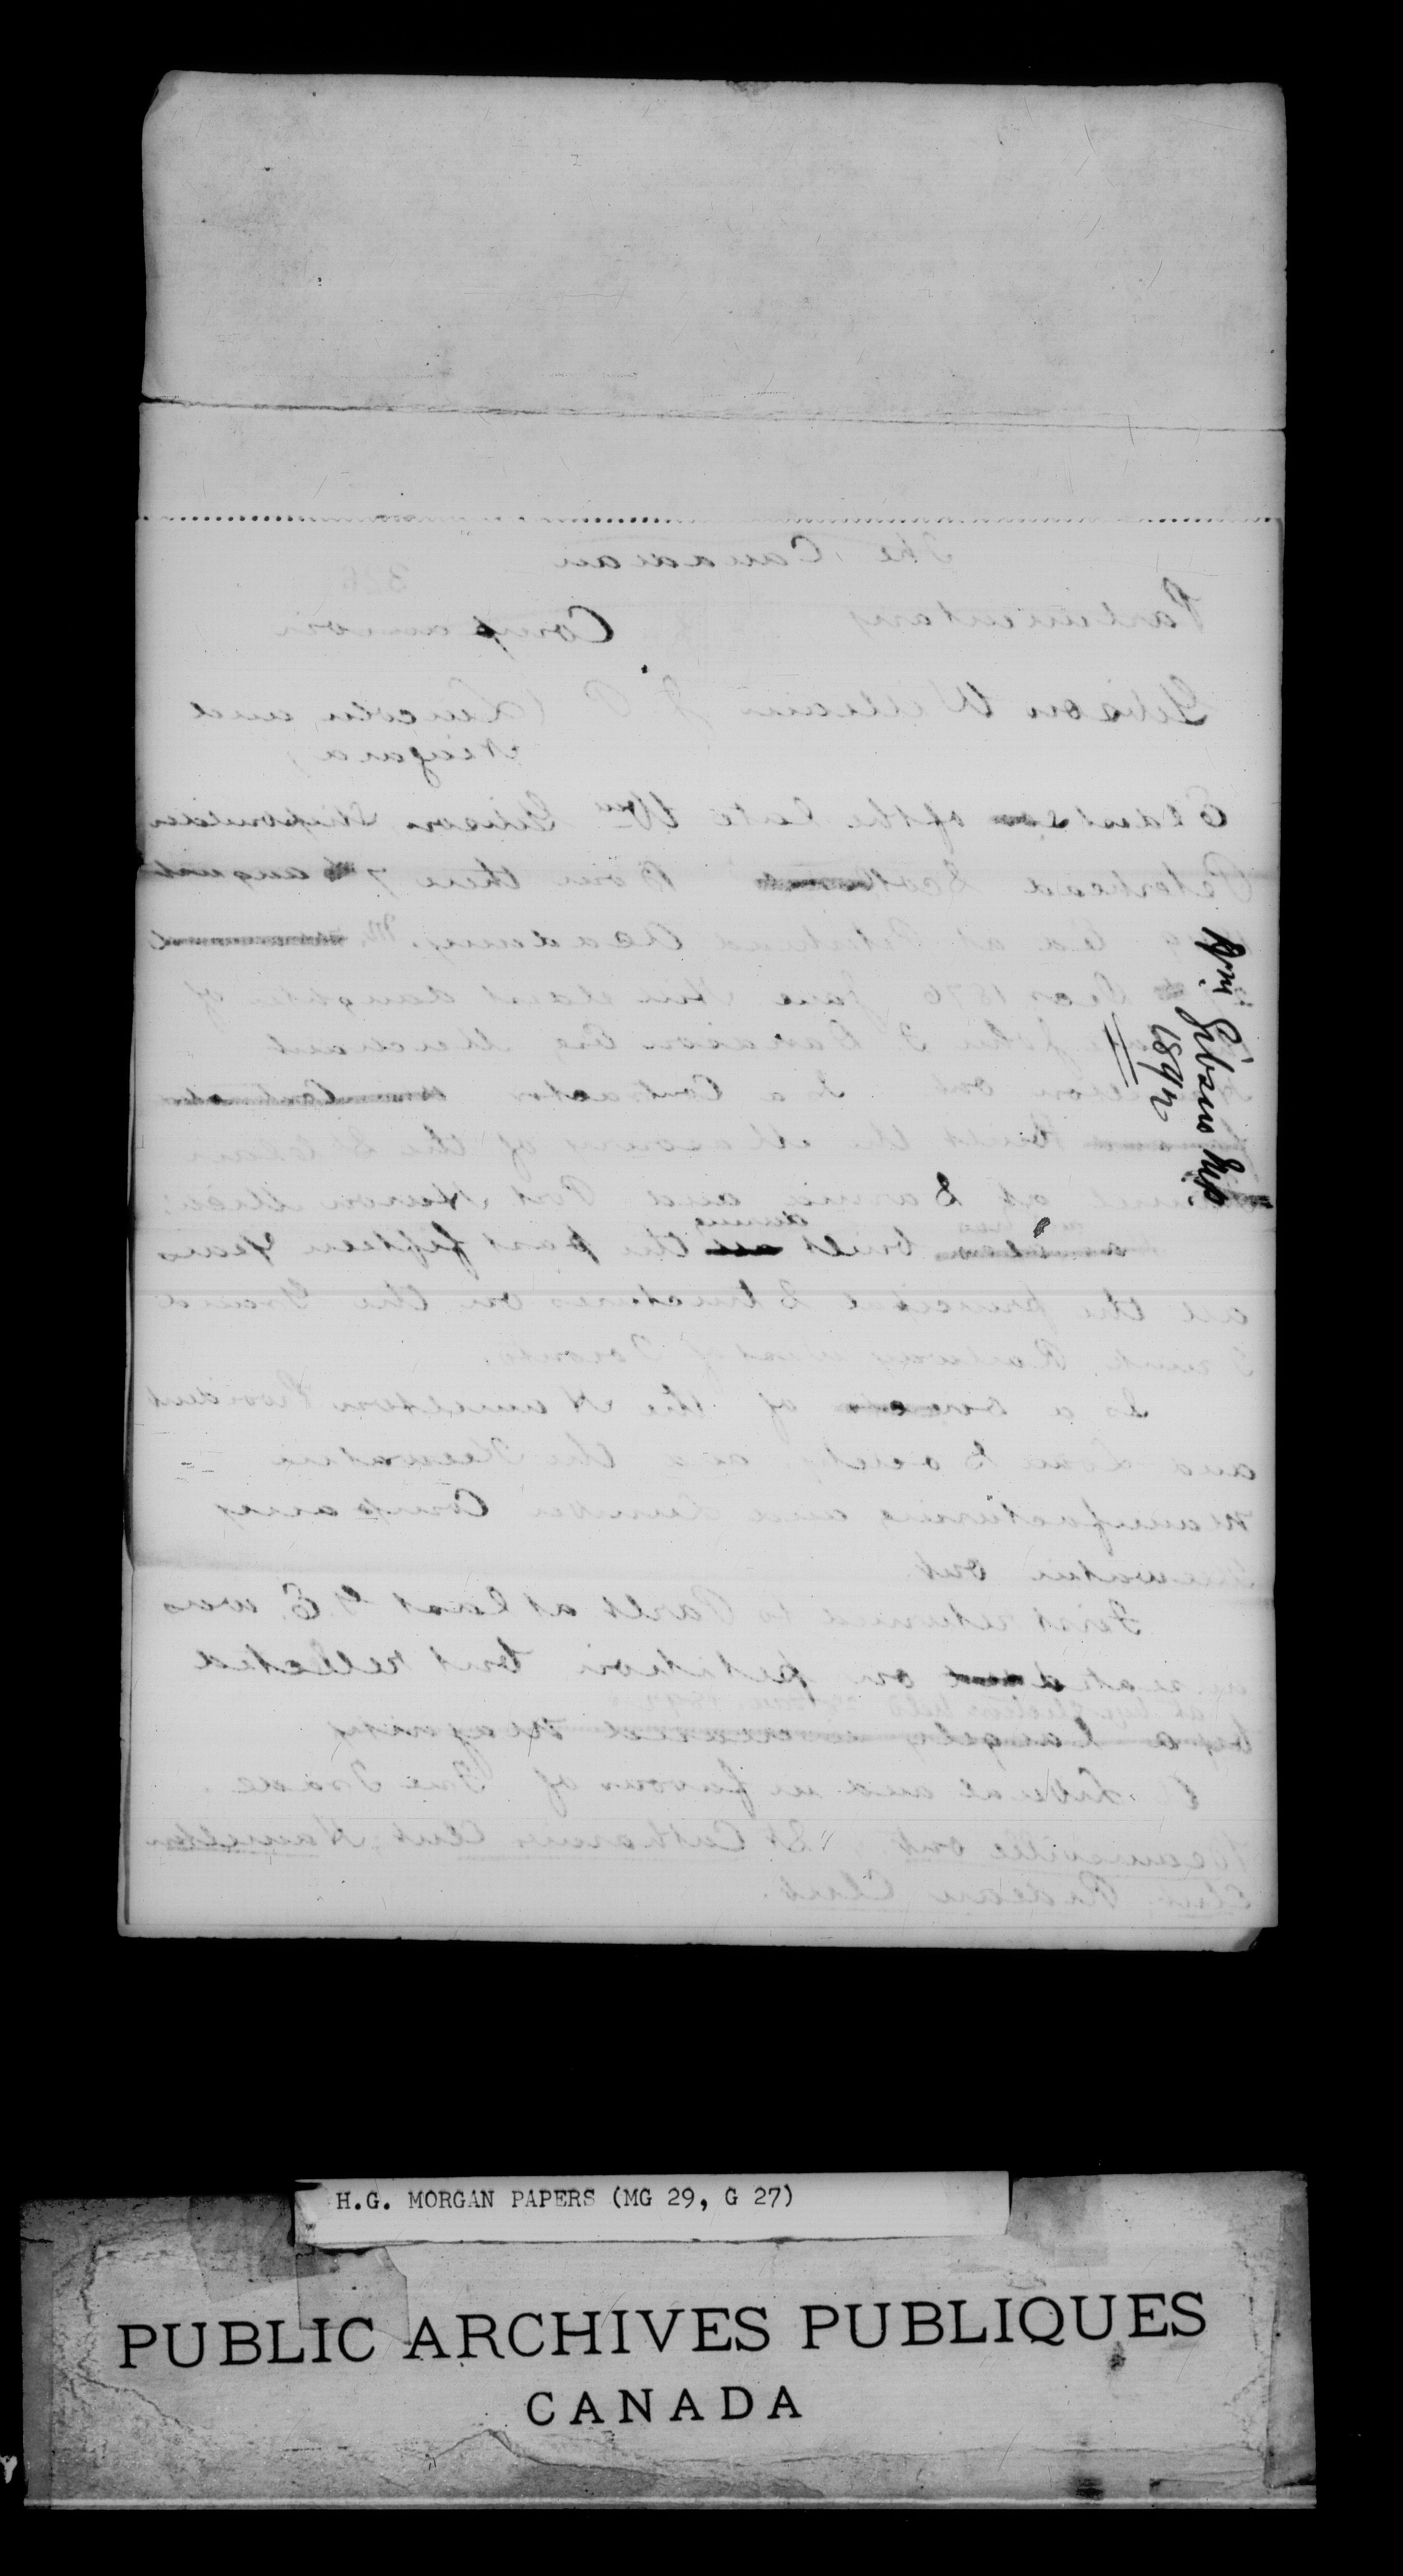 The Canadian
326
Parliamentary Companion
Gibson William J P (Lincoln and
Niagara)
Eldest son of the Late Wm Gibson Shipbuilder
Peterhead Scot Born there 7 august
Ed at Peterhead Academy. M.
1876 Jane eldest daughter of
John F Davidson Esq Merchant
Ont Is a Contractor Contractor
Built the Masonry of the St Clair
at Sarnia and Port Huron Mich,
also has during
built all the past fifteen years
all the principal Structures on the Grand
Trunk Railway West of Toronto.
Is a Director of the Hamilton Provident
and Loan Society, and the Keewatin
Manufacturing and Lumber Company
Keewatin Ont
First returned to Parlt at last G. E. was
unseated on petition but reelected
at bye election held
by a largely increased Majority
A Liberal and in favour of Free Trade.
Beamsville Ont, St Catharines Club, Hamilton
Club, Rideau Club.
Wm Gibson MP.
1892
H.G. MORGAN PAPERS (MG 29, G 27)
PUBLIC ARCHIVES PUBLIQUES
CANADA